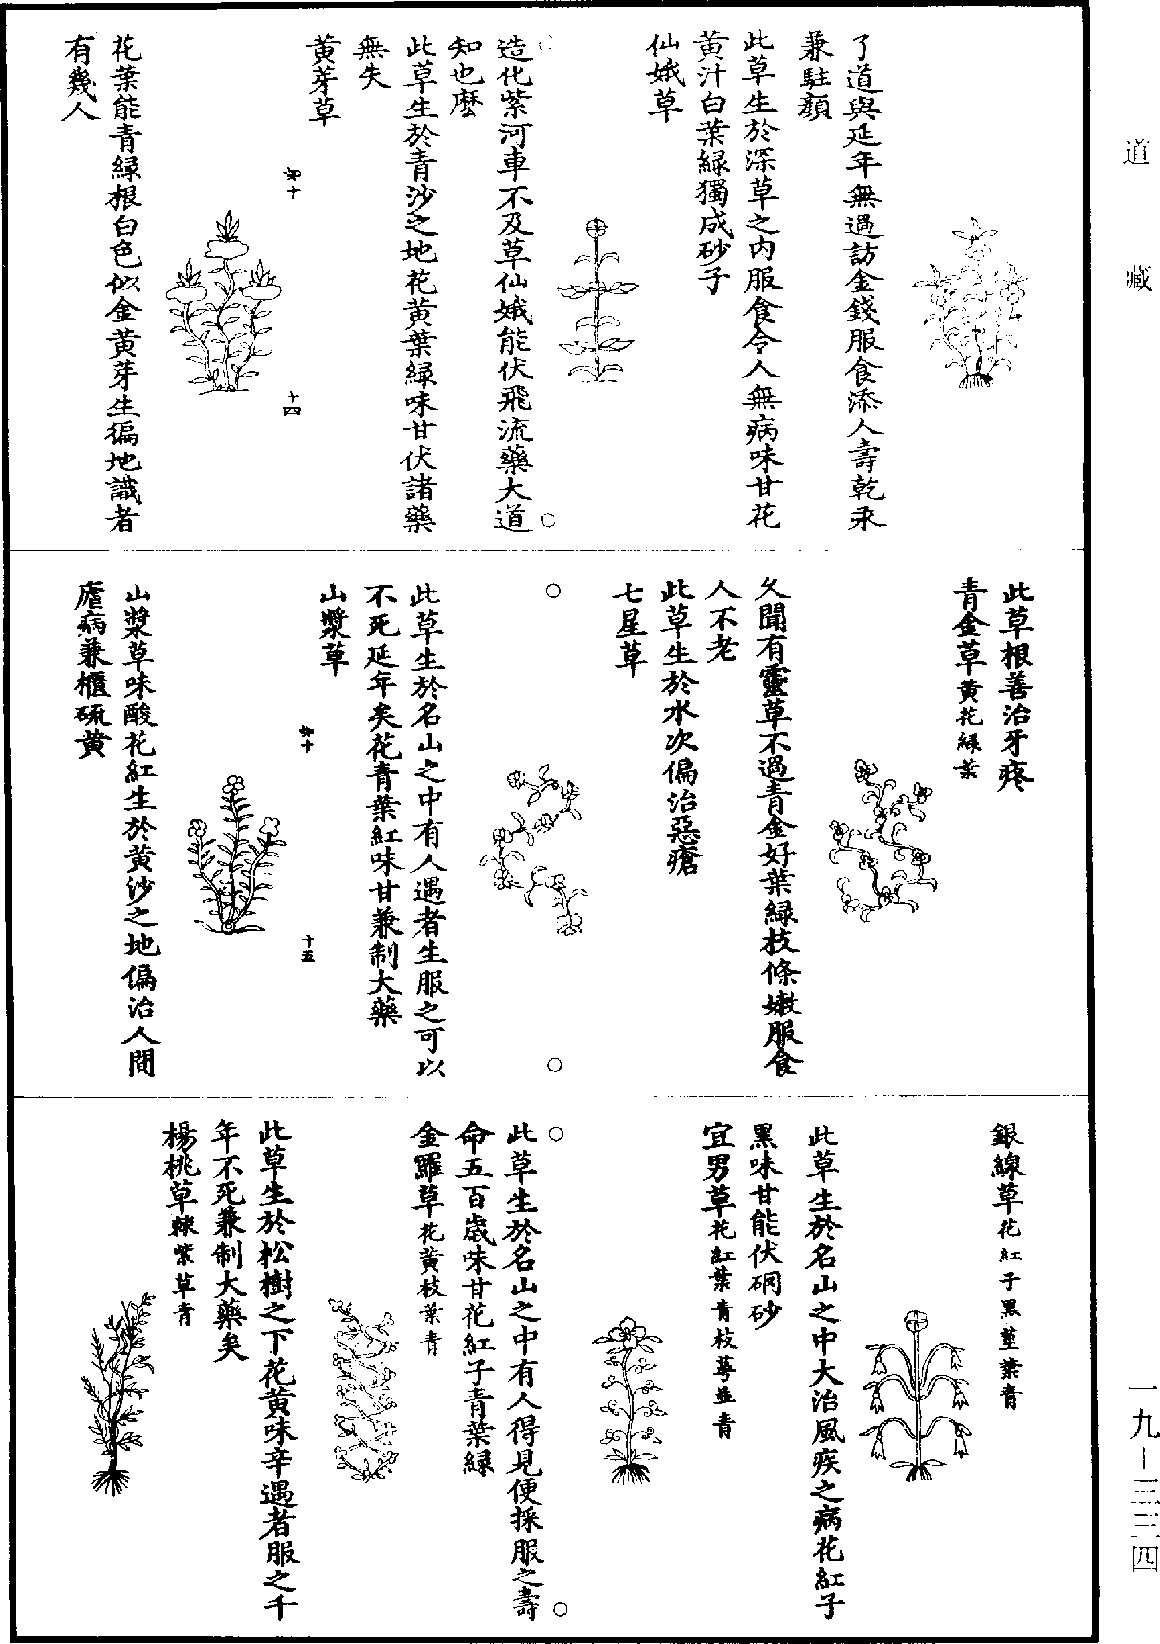 道藏
了道與延年無過訪金錢服食添人壽乾汞
兼駐顏
此草生於深草之内服食令人無病味甘花
黄汁白葉緑獨成砂子
仙娥草
造化紫河車不及草仙娥能伏飛流藥大道
知也麽
此草生於青沙之地花黄葉緑味甘伏諸藥
無失
黄芽草
如十
十四
花葉能青緑根白色似金黄芽生徧地識者
有幾人
此草根善治牙疼
青金草黄花緑葉
久聞有靈草不過青金好葉緑枝條嫩服食
人不老
此草生於水次偏治惡瘡
七星草
此草生於名山之中有人遇者生服之可以
不死延年矣花青葉紅味甘兼制大藥
山漿草
如十
十五
山漿草味酸花紅生於黄沙之地偏治人間
瘧病兼櫃硫黄
銀線草花紅子黑莖葉青
此草生於名山之中大治風疾之病花紅子
黑味甘能伏硇砂
宜男草花紅葉青枝蕚並青
此草生於名山之中有人得見便採服之壽
命五百歲味甘花紅子青葉緑
金羅草花黄枝葉青
此草生於松樹之下花黄味辛遇者服之千
年不死兼制大藥矣
楊桃草棘紫草青
一九—三三四